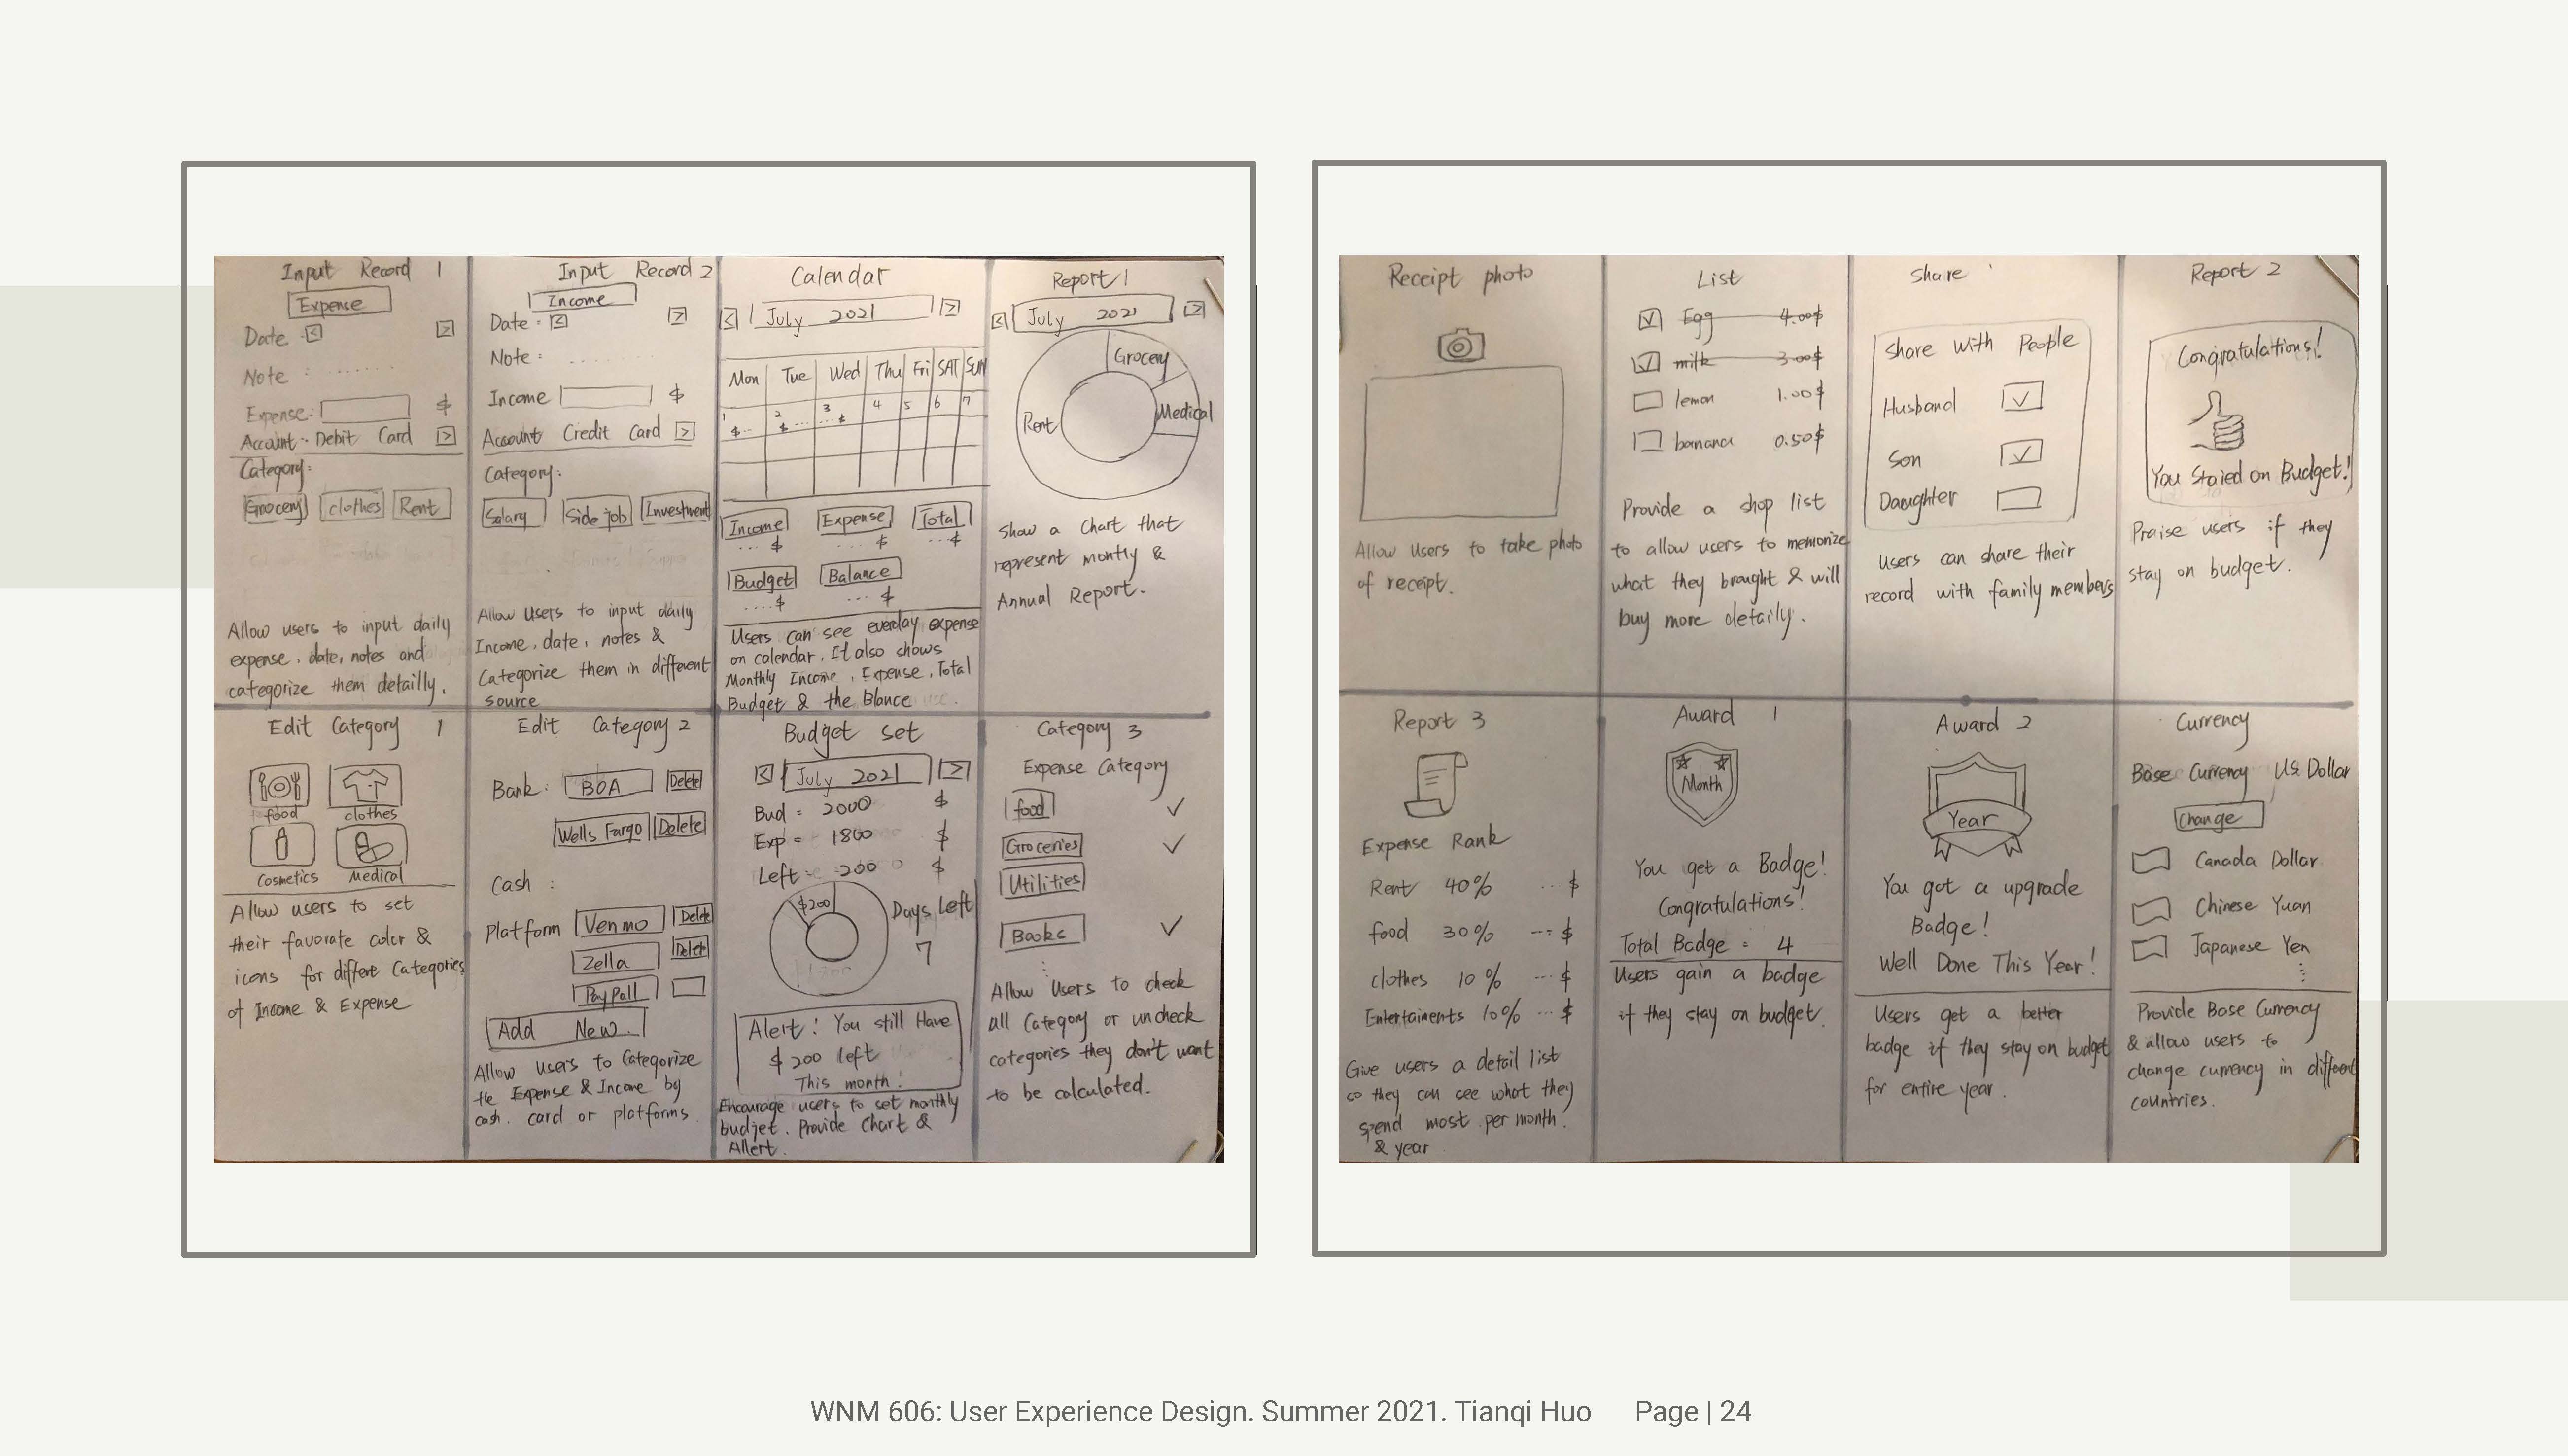 Input Record 1
Expense
Date : < >
Note : .......
Expense: $
Account: Debit Card >
Category:
Grocery clothes Rent
Allow users to input daily
expense, date, notes and
categorize them detailly.
Input Record 2
Income
Date : < >
Note : .......
Income $
Account Credit Card >
Category:
Salary Side job Investment
Allow users to input daily
Income, date, notes &
Categorize them in different
source
Calendar
< July 2021 >
Mon Tue Wed Thu Fri SAT SUN
1 2 3 4 5 6 7
$.. $... ...$
Income Expense Total
... $ ... $ ... $
Budget Balance
.... $ ... $
Users can see everday expense
on calendar, It also shows
Monthly Income, Expense, Total
Budget & the Blance
Report 1
< July 2021 >
Grocery
Medical
Rent
Show a Chart that
represent montly &
Annual Report.
Edit Category 1
food clothes
Cosmetics Medical
Allow users to set
their favorate color &
icons for differt Categories
of Income & Expense
Edit Category 2
Bank: BOA Delete
Wells Fargo Delete
Cash :
Platform Venmo Delete
Zella Delete
PayPall
Add New
Allow users to Categorize
the Expense & Income by
cash, card or platforms
Budget set
< July 2021 >
Bud = 2000 $
Exp = 1800 $
Left = 200 $
$200
Days Left
7
Alert! You still Have
$200 left
This month!
Encourage users to set monthly
budjet. Provide Chart &
Allert.
Category 3
Expense Category
food ✓
Groceries ✓
Utilities
Books ✓
Allow Users to check
all Category or uncheck
categories they don't want
to be calculated.
Receipt photo
Allow users to take photo
of receipt.
List
Egg 4.00$
milk 3.00$
lemon 1.00$
banana 0.50$
Provide a shop list
to allow users to memorize
what they brought & will
buy more detaily.
Share
Share with People
Husband ✓
Son ✓
Daughter
Users can share their
record with family members
Report 2
Congratulations!
You Staied on Budget!
Praise users if they
stay on budget.
Report 3
Expense Rank
Rent 40% .. $
food 30% --- $
clothes 10% --- $
Entertaiments 10% ... $
Give users a detail list
so they can see what they
spend most per month.
& year
Award 1
Month
You get a Badge!
Congratulations!
Total Badge : 4
Users gain a badge
if they stay on budget.
Award 2
Year
You got a upgrade
Badge!
Well Done This Year!
Users get a better
badge if they stay on budget
for entire year.
Currency
Base Currency US. Dollar
Change
Canada Dollar
Chinese Yuan
Japanese Yen
Provide Base Currency
& allow users to
change currency in different
countries.
WNM 606: User Experience Design. Summer 2021. Tianqi Huo Page | 24